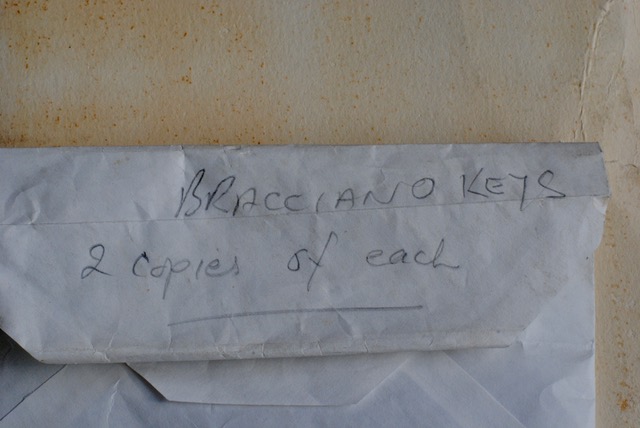 BRACCIANO KEYS
2 copies of each